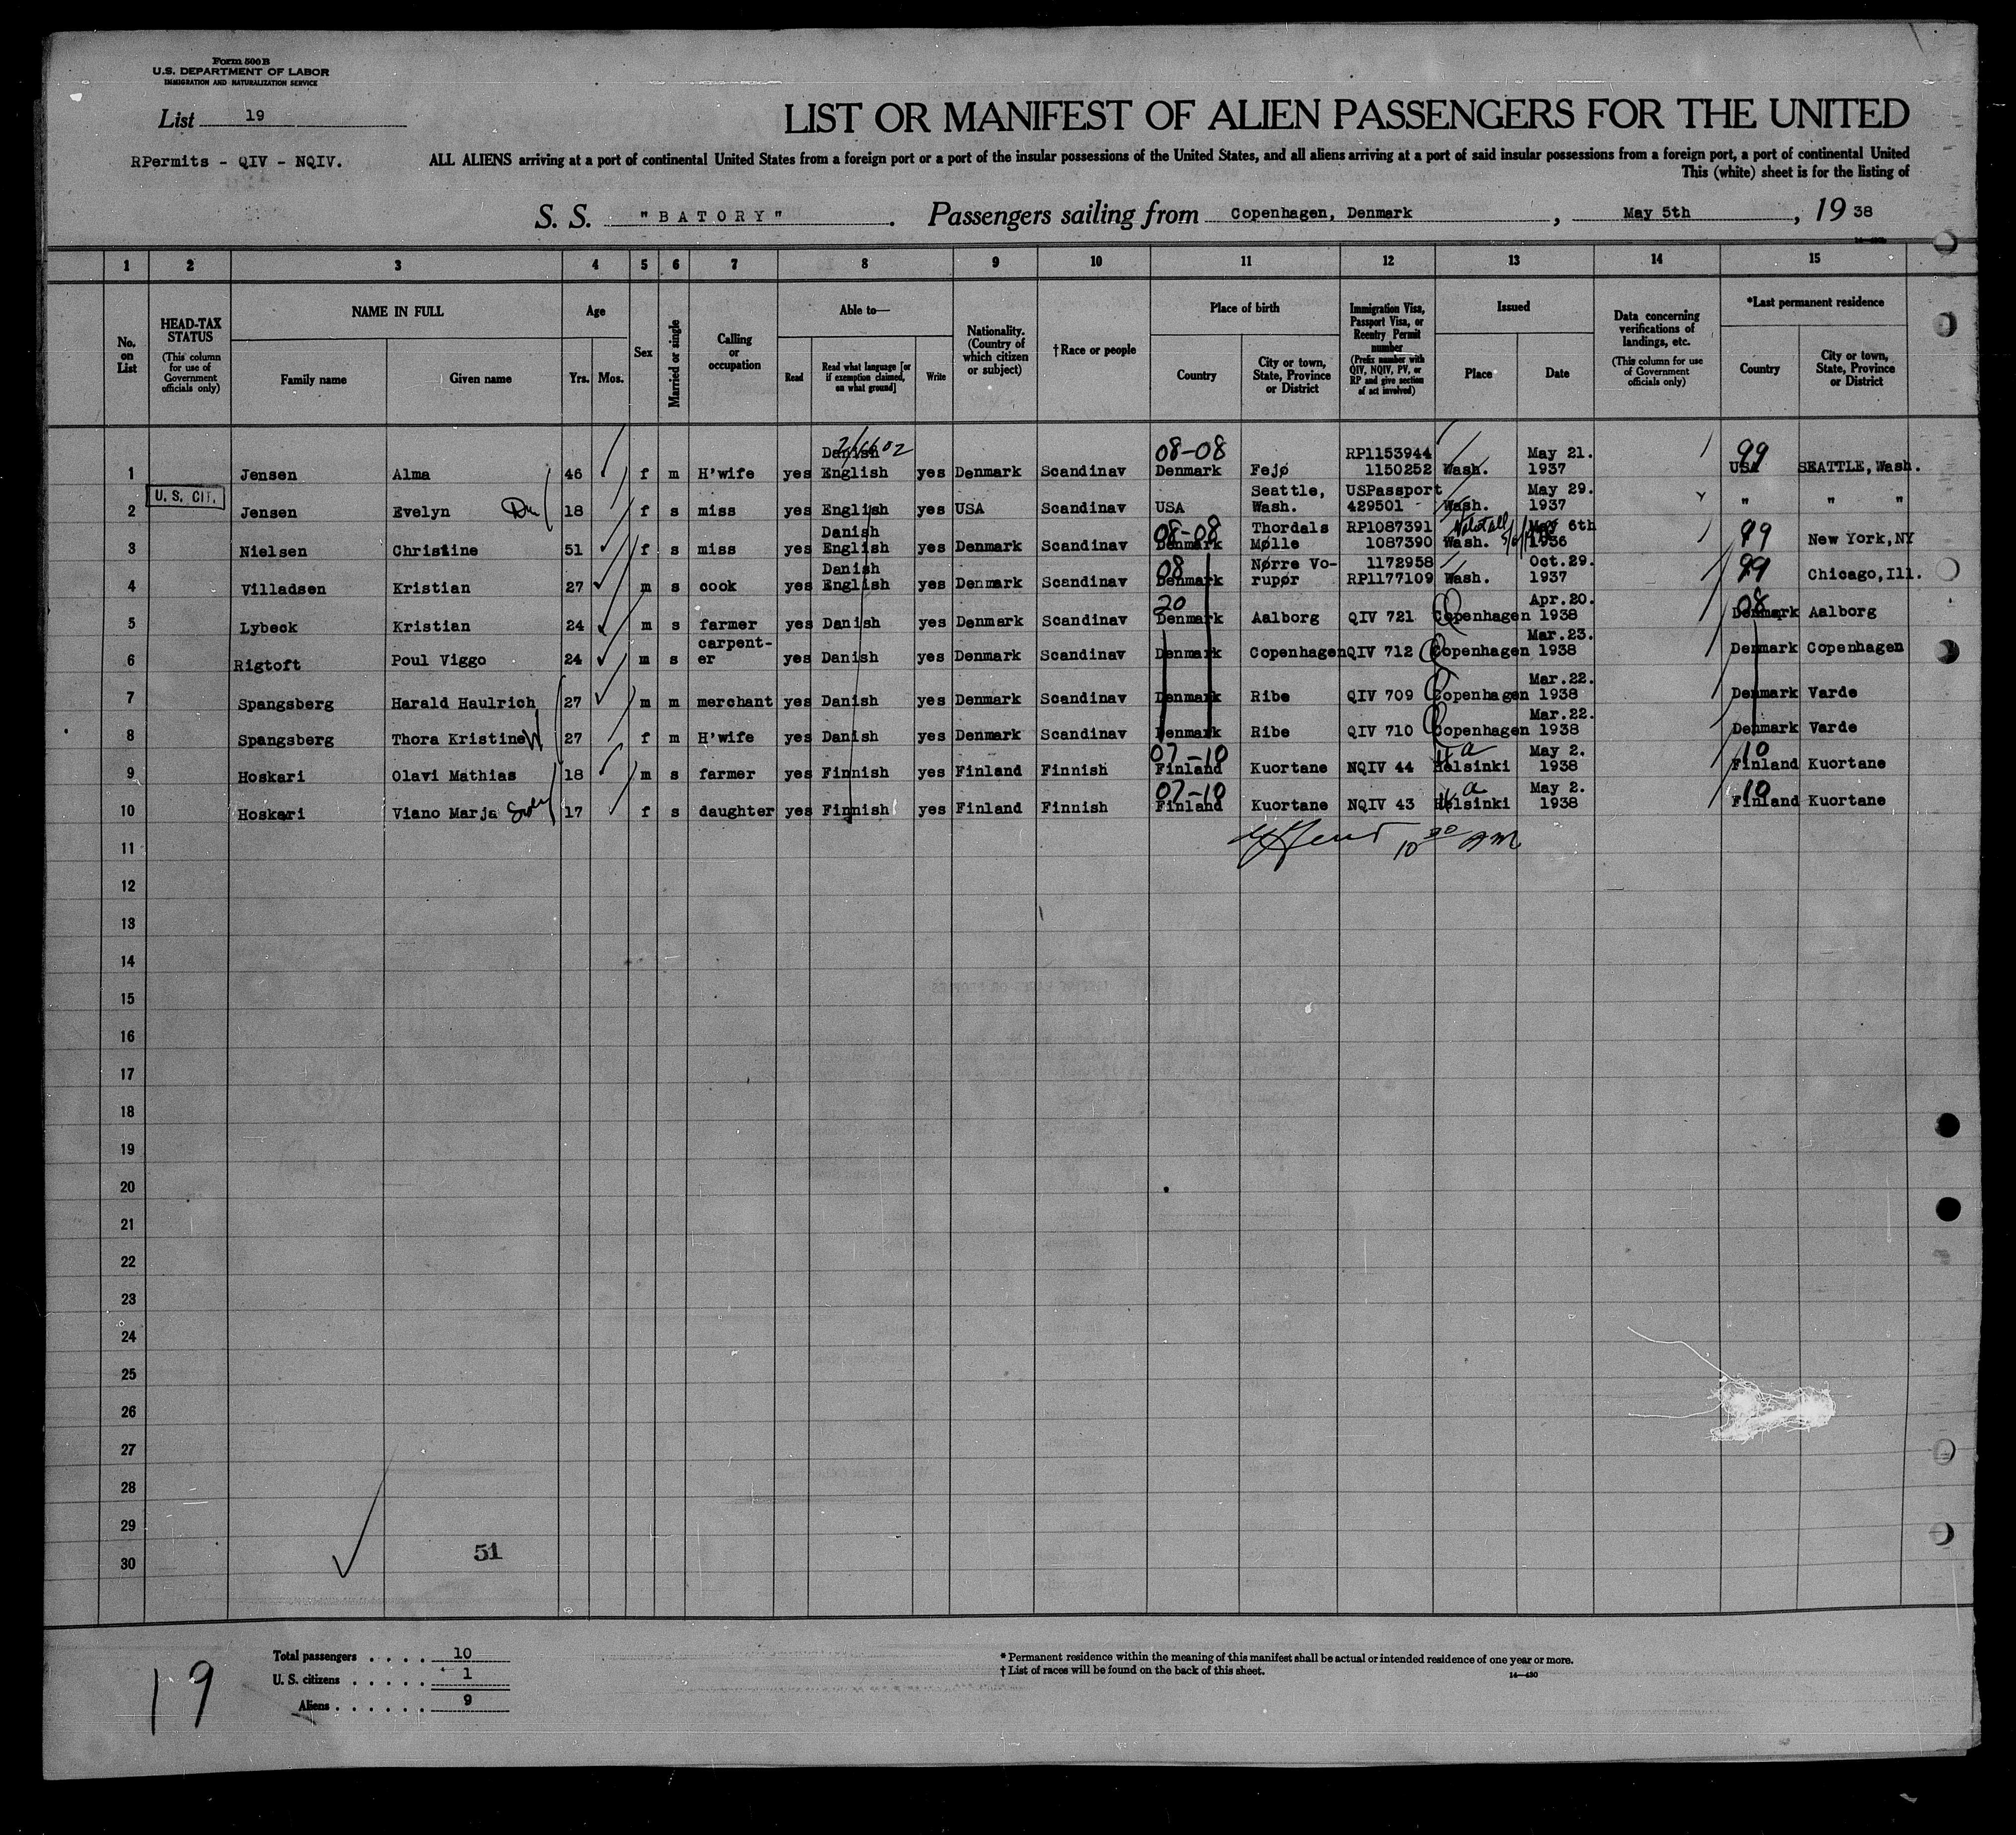 Form 500 B
U.S. DEPARTMENT OF LABOR
IMMIGRATION AND NATURALIZATION SERVICE
List 19
LIST OR MANIFEST OF ALIEN PASSENGERS FOR THE UNITED
RPermits - QIV - NQIV.
ALL ALIENS arriving at a port of continental United States from a foreign port or a port of the insular possessions of the United States, and all aliens arriving at a port of said insular possessions from a foreign port, a port of continental United
This (white) sheet is for the listing of
S. S. "BATORY". Passengers sailing from Copenhagen, Denmark, May 5th, 19 38
1 2 3 4 5 6 7 8 9 10 11 12 13 14 15
No. on List
HEAD-TAX STATUS (This column for use of Government officials only)
NAME IN FULL Family name Given name
Age Yrs. Mos.
Sex
Married or single
Calling or occupation
Able to— Read Read what language [or if exemption claimed, on what ground] Write
Nationality. (Country of which citizen or subject)
†Race or people
Place of birth Country City or town, State, Province or District
Immigration Visa, Passport Visa, or Reentry Permit number (Prefix number with QIV, NQIV, PV, or RP and give section of act involved)
Issued Place Date
Data concerning verifications of landings, etc. (This column for use of Government officials only)
*Last permanent residence Country City or town, State, Province or District
1 Jensen Alma 46 f m H'wife yes Danish English yes Denmark Scandinav 08-08 Denmark Fejø RP1153944 1150252 Wash. May 21. 1937 99 USA SEATTLE, Wash.
2 U. S. CIT. Jensen Evelyn 18 f s miss yes English yes USA Scandinav USA Seattle, Wash. USPassport 429501 Wash. May 29. 1937 " " "
3 Nielsen Christine 51 f s miss yes Danish English yes Denmark Scandinav 08-08 Denmark Thordals Mølle RP1087391 1087390 Wash. May 6th 1936 99 New York, NY
4 Villadsen Kristian 27 m s cook yes Danish English yes Denmark Scandinav 08 Denmark Nørre Vorupør 1172958 RP1177109 Wash. Oct.29. 1937 99 Chicago, Ill.
5 Lybeck Kristian 24 m s farmer yes Danish yes Denmark Scandinav 20 Denmark Aalborg QIV 721 Copenhagen Apr.20. 1938 08 Denmark Aalborg
6 Rigtoft Poul Viggo 24 m s carpent-er yes Danish yes Denmark Scandinav Denmark Copenhagen QIV 712 Copenhagen Mar.23. 1938 Denmark Copenhagen
7 Spangsberg Harald Haulrich 27 m m merchant yes Danish yes Denmark Scandinav Denmark Ribe QIV 709 Copenhagen Mar.22. 1938 Denmark Varde
8 Spangsberg Thora Kristine 27 f m H'wife yes Danish yes Denmark Scandinav Denmark Ribe QIV 710 Copenhagen Mar.22. 1938 Denmark Varde
9 Hoskari Olavi Mathias 18 m s farmer yes Finnish yes Finland Finnish 07-10 Finland Kuortane NQIV 44 Helsinki May 2. 1938 10 Finland Kuortane
10 Hoskari Viano Marja 17 f s daughter yes Finnish yes Finland Finnish 07-10 Finland Kuortane NQIV 43 Helsinki May 2. 1938 10 Finland Kuortane
11
12
13
14
15
16
17
18
19
20
21
22
23
24
25
26
27
28
29
30
51
19
Total passengers . . . . 10
U. S. citizens . . . . . 1
Aliens . . . . . . 9
* Permanent residence within the meaning of this manifest shall be actual or intended residence of one year or more.
† List of races will be found on the back of this sheet.
14—430